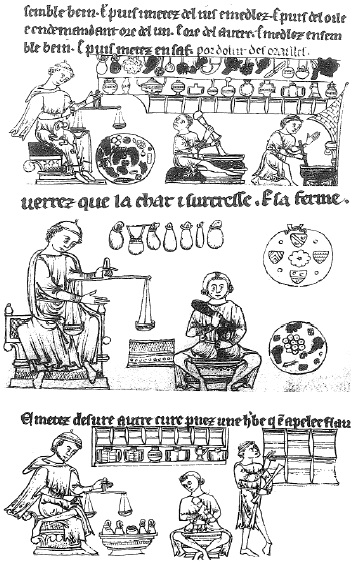 semble bein. E puis metez del ius e medlez. E puis del oile
e endemandant ore del un. E ore del autre. E medlez ensem
ble bein. E puis metez en sac. por dolur des orailles.
verrez que la char i surcresse. E sa ferme.
E metez desure autre cure puez une h'be qe apelee flau